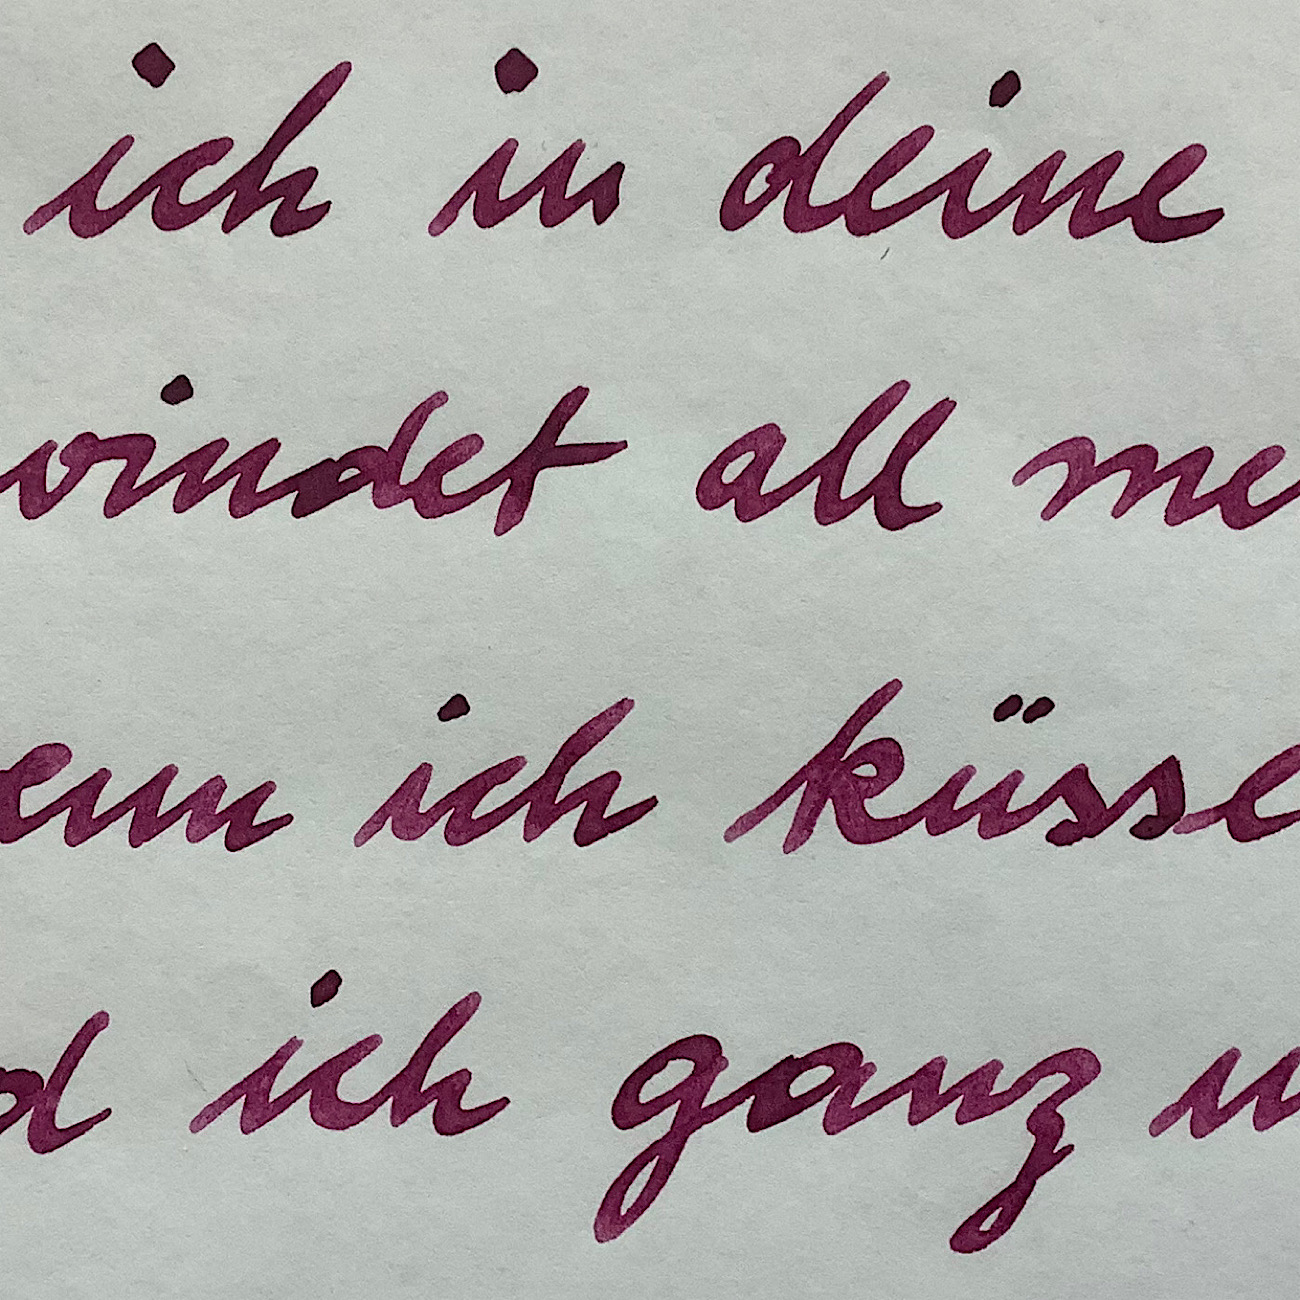 ich in deine
windet all me
enn ich küsse
d ich ganz u